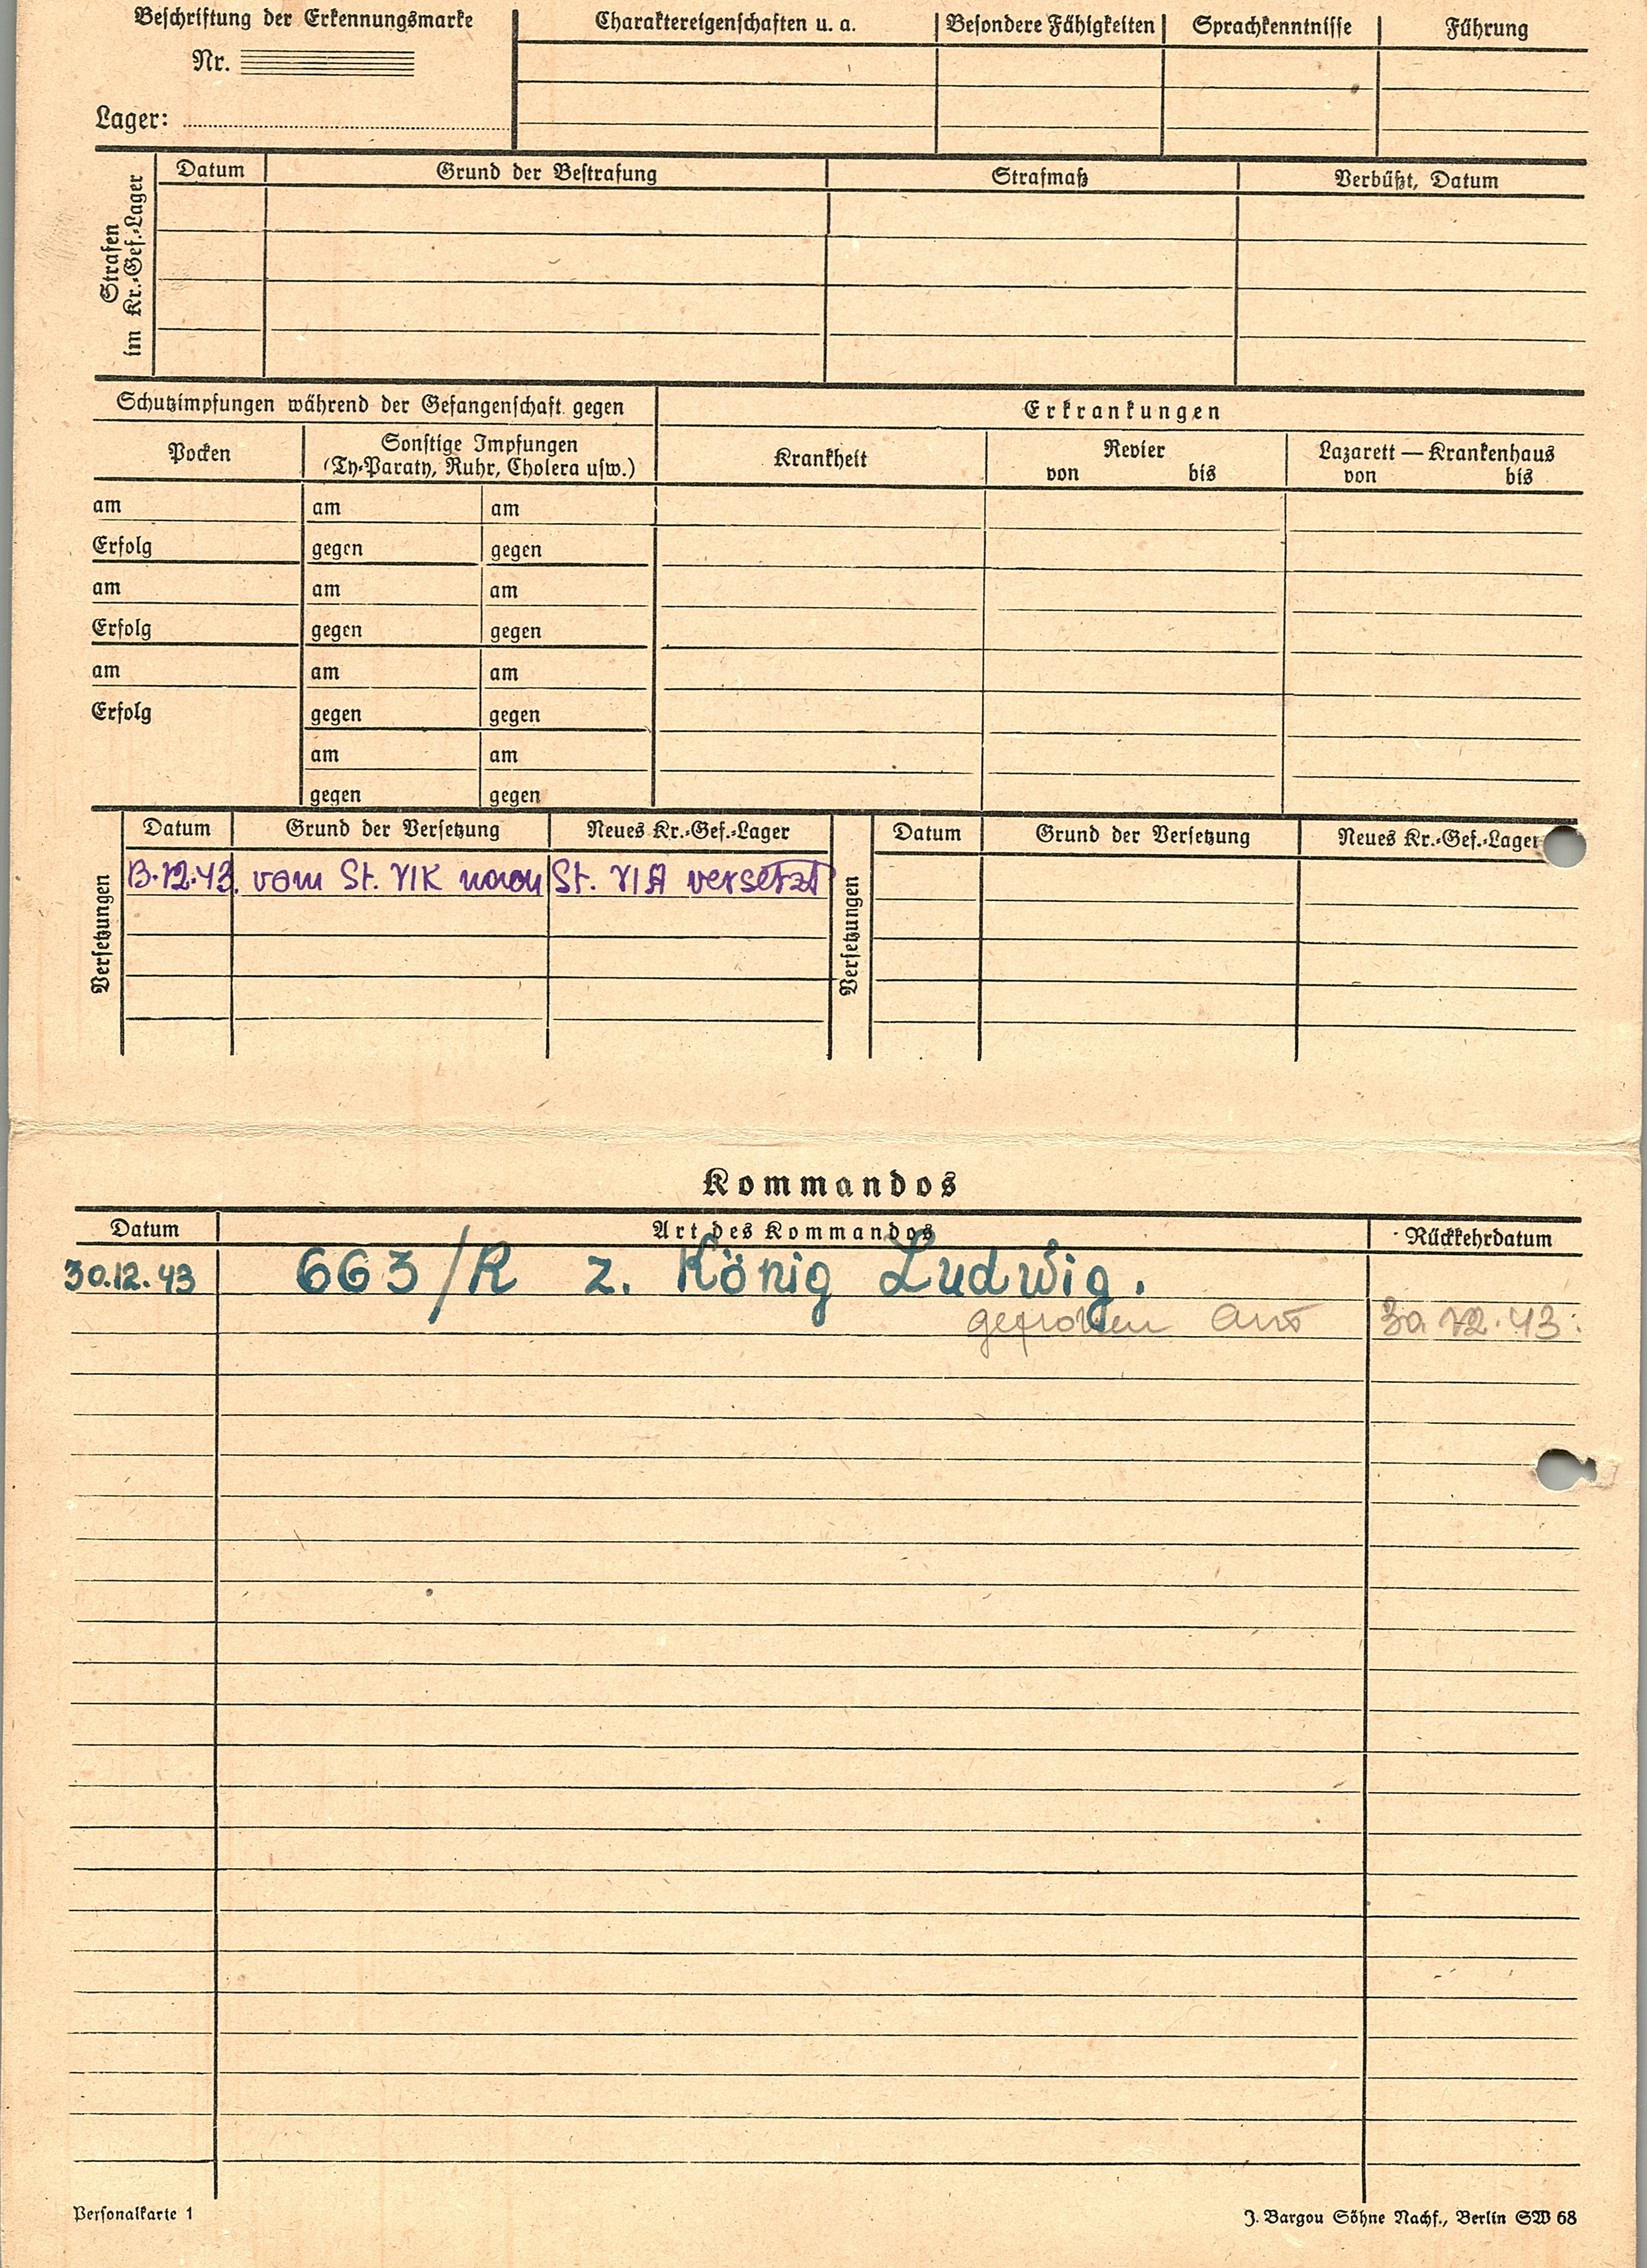 Beschriftung der Erkennungsmarke
Nr.
Lager:
Charaktereigenschaften u. a.
Besondere Fähigkeiten
Sprachkenntnisse
Führung
Strafen im Kr.-Gef.-Lager
Datum
Grund der Bestrafung
Strafmaß
Verbüßt, Datum
Schutzimpfungen während der Gefangenschaft gegen
Erkrankungen
Pocken
Sonstige Impfungen
(Ty-Paraty, Ruhr, Cholera usw.)
Krankheit
Revier
von bis
Lazarett — Krankenhaus
von bis
am am am
Erfolg gegen gegen
am am am
Erfolg gegen gegen
am am am
Erfolg gegen gegen
am am
gegen gegen
Versetzungen
Datum Grund der Versetzung Neues Kr.-Gef.-Lager
13.12.43. vom St. VIK nach St. VIA versetzt
Versetzungen
Datum Grund der Versetzung Neues Kr.-Gef.-Lager
Kommandos
Datum Art des Kommandos Rückkehrdatum
30.12.43 663/R z. König Ludwig.
12.43.
Personalkarte 1
J. Bargou Söhne Nachf., Berlin SW 68